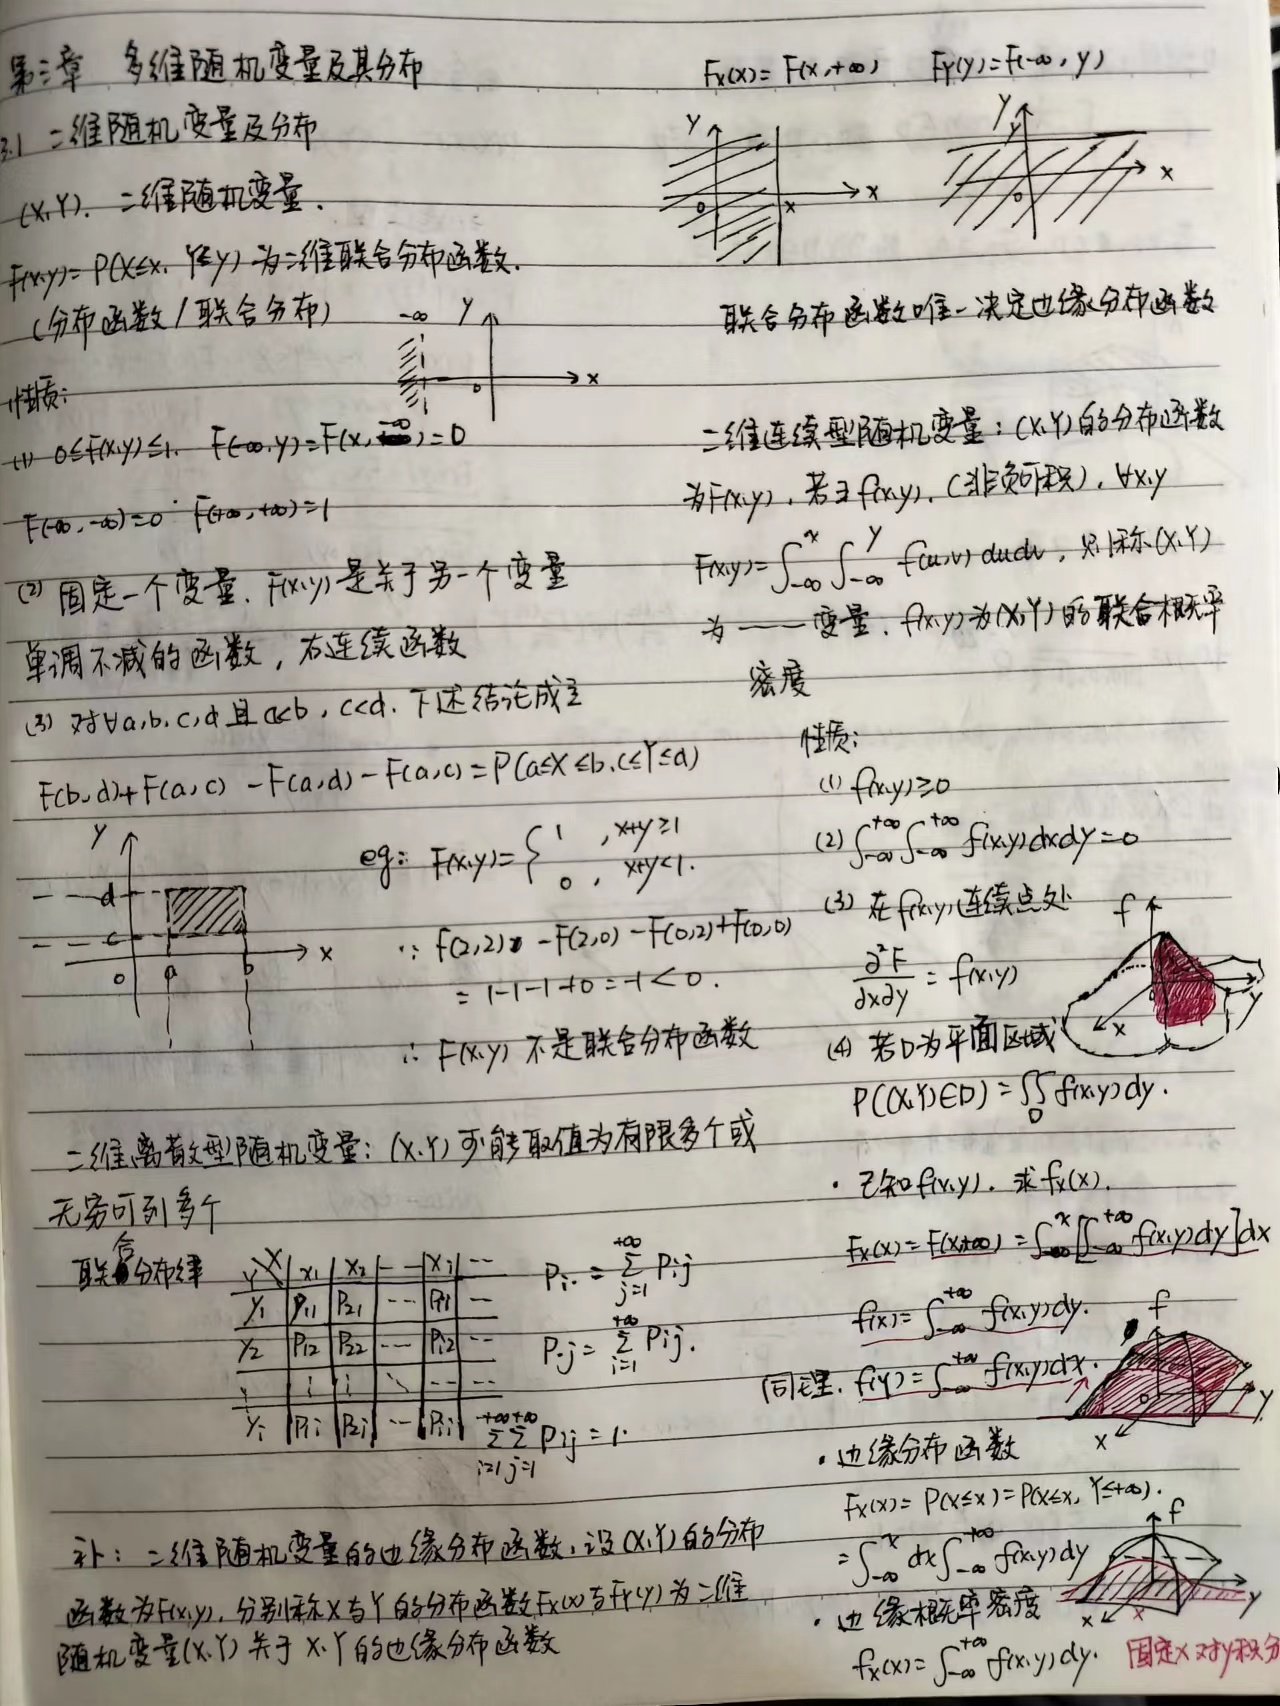 第三章 多维随机变量及其分布
3.1 二维随机变量及分布
(X,Y). 二维随机变量.
F(x,y)=P(X≤x, Y≤y) 为二维联合分布函数.
(分布函数/联合分布)
-∞ y x 0
性质:
(1) 0≤F(x,y)≤1. F(-∞,y)=F(x,-∞)=0
F(-∞,-∞)=0 F(+∞,+∞)=1
(2) 固定一个变量. F(x,y)是关于另一个变量
单调不减的函数, 右连续函数
(3) 对∀a,b,c,d且a<b, c<d. 下述结论成立
F(b,d)+F(a,c)-F(a,d)-F(a,c)=P(a≤X≤b,c≤Y≤d)
y d c 0 a b x
eg: F(x,y)={1, x+y≥1
0, x+y<1.
∵ F(2,2)-F(2,0)-F(0,2)+F(0,0)
=1-1-1+0=-1<0.
∴ F(x,y)不是联合分布函数
二维离散型随机变量: (X,Y)可能取值为有限多个或
无穷可列多个
联合分布律
Y X x₁ x₂ -- --
y₁ P₁₁ P₂₁ --- --
y₂ P₁₂ P₂₂ --- Pi₂ --
⋮ ⋮ ⋮ ⋱ -- --
Pi.=∑_{j=1}^{+∞} Pij
P.j=∑_{i=1}^{+∞} Pij.
∑_{i=1}^{+∞}∑_{j=1}^{+∞} Pij=1.
补: 二维随机变量的边缘分布函数.设(X,Y)的分布
函数为F(x,y), 分别称X与Y的分布函数Fx(x)与FY(y)为二维
随机变量(X,Y)关于X,Y的边缘分布函数
Fx(x)=F(x,+∞) FY(y)=F(-∞,y)
y 0 x x
y y 0 x
联合分布函数唯一决定边缘分布函数
二维连续型随机变量: (X,Y)的分布函数
为F(x,y), 若∃f(x,y), (非负可积), ∀x,y
F(x,y)=∫_{-∞}^{x}∫_{-∞}^{y} f(u,v)dudv, 则称(X,Y)
为——变量. f(x,y)为(X,Y)的联合概率
密度
性质:
(1) f(x,y)≥0
(2) ∫_{-∞}^{+∞}∫_{-∞}^{+∞} f(x,y)dxdy=0
(3) 在f(x,y)连续点处
∂²F/∂x∂y=f(x,y)
f x y
(4) 若D为平面区域
P((X,Y)∈D)=∬_D f(x,y)dy.
· 已知f(x,y). 求fx(x).
Fx(x)=F(x,+∞)=∫_{-∞}^{x}[∫_{-∞}^{+∞} f(x,y)dy]dx
f(x)=∫_{-∞}^{+∞} f(x,y)dy.
同理. f(y)=∫_{-∞}^{+∞} f(x,y)dx.
f 0 x y
· 边缘分布函数
Fx(x)=P(X≤x)=P(X≤x, Y≤+∞).
=∫_{-∞}^{x}dx∫_{-∞}^{+∞} f(x,y)dy
f x x y
· 边缘概率密度
fx(x)=∫_{-∞}^{+∞} f(x,y)dy.
固定x对y积分